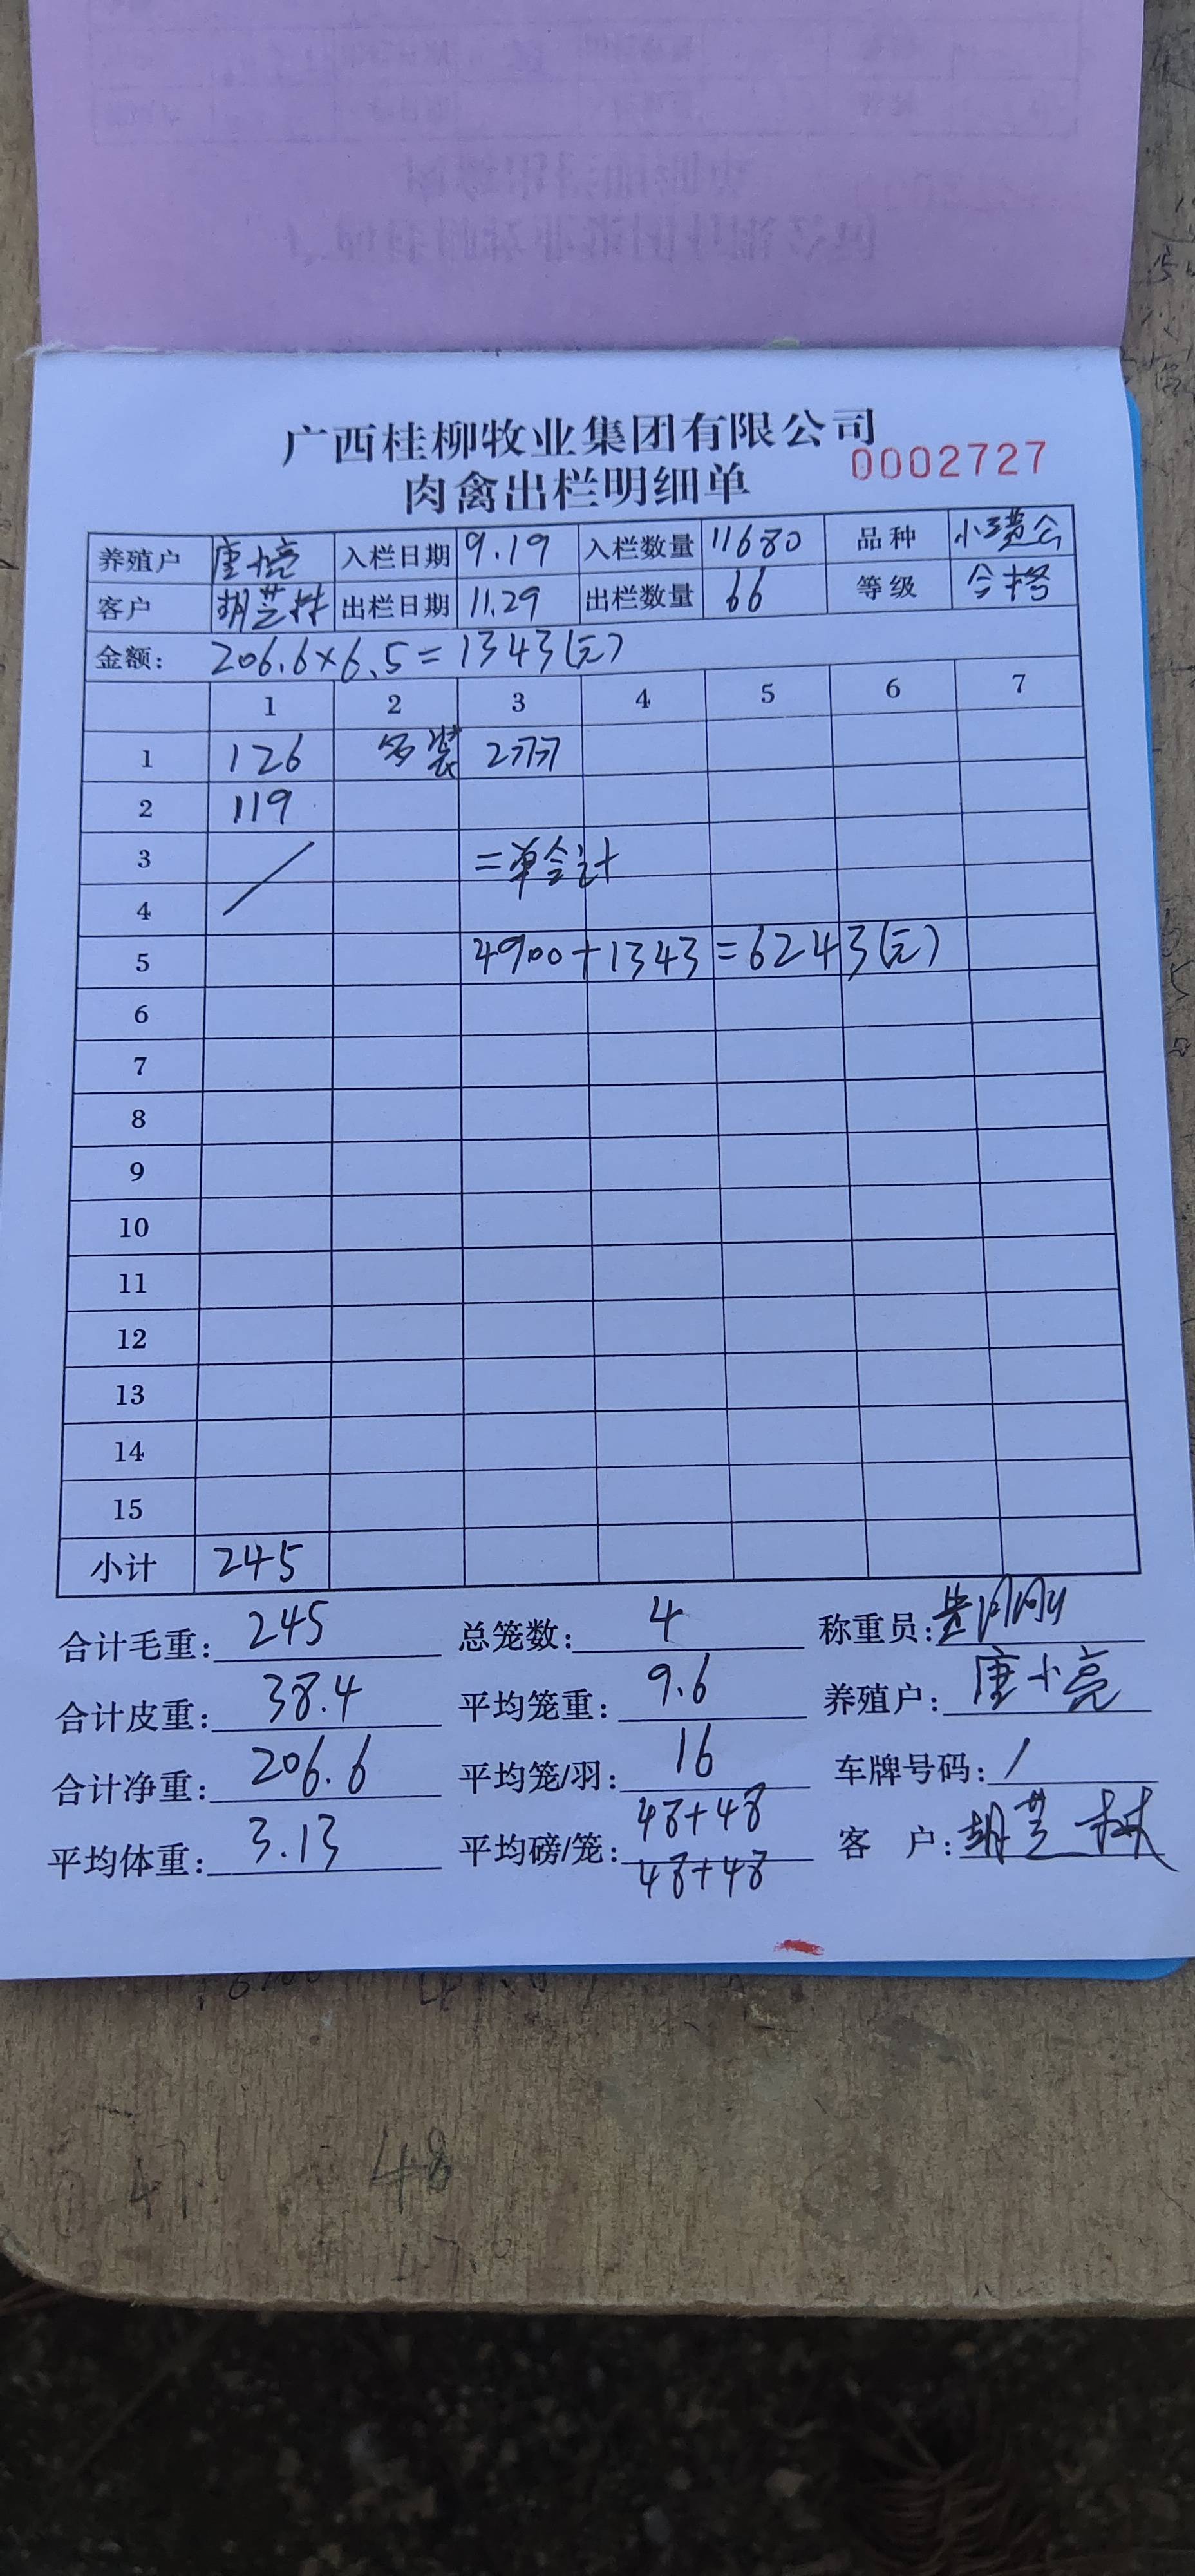 广西桂柳牧业集团有限公司
肉禽出栏明细单 0002727
养殖户 唐小亮 入栏日期 9.19 入栏数量 11680 品种
客户 胡芝林 出栏日期 11.29 出栏数量 66 等级 合格
金额: 206.6×6.5=1343(元)
1 2 3 4 5 6 7
1 126 另装 2羽
2 119
3 二单合计
4
5 4900+1343=6243(元)
6
7
8
9
10
11
12
13
14
15
小计 245
合计毛重: 245 总笼数: 4 称重员:
合计皮重: 38.4 平均笼重: 9.6 养殖户: 唐小亮
合计净重: 206.6 平均笼/羽: 16 车牌号码: /
48+48
平均体重: 3.13 平均磅/笼: 客 户: 胡芝林
48+48
48